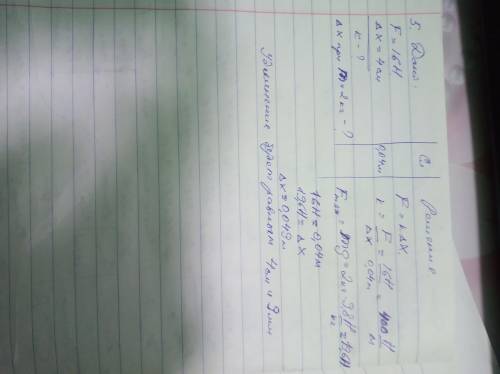 5. Дано:
F = 16Н
Δx = 4см
к - ?
Δx при m = 2 кг - ?
Си
0,04м
Решение
F = kΔX
k = F/Δx = 16Н/0,04м = 400 Н/м
Fтяж = mg = 2кг · 9,8 Н/кг = 19,6Н
16Н = 0,04м
19,6Н = Δx
Δx = 0,049м
Удлинение будет равным 4см и 9мм